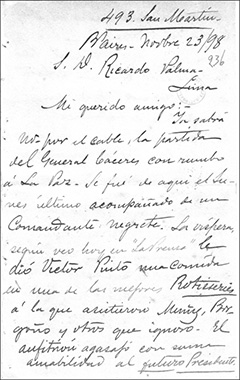 493. San Martin.
B'aires - Novbre 23/98
S. D. Ricardo Palma -
936
Lima
Mi querido amigo: -
Ya sabrá
no por el cable, la partida
del General Cáceres con rumbo
á La Paz. Se fué de aqui el lu-
nes último acompañado de un
Comandante Negrete. La víspera,
según veo hoy en "La Prensa" le
dió Victor Pinto una comida
en una de las mejores Rotiseries
á la que asistieron Muñiz,
y otros que ignoro. El
anfitrión agasajó con suma
amabilidad al futuro Presidente.